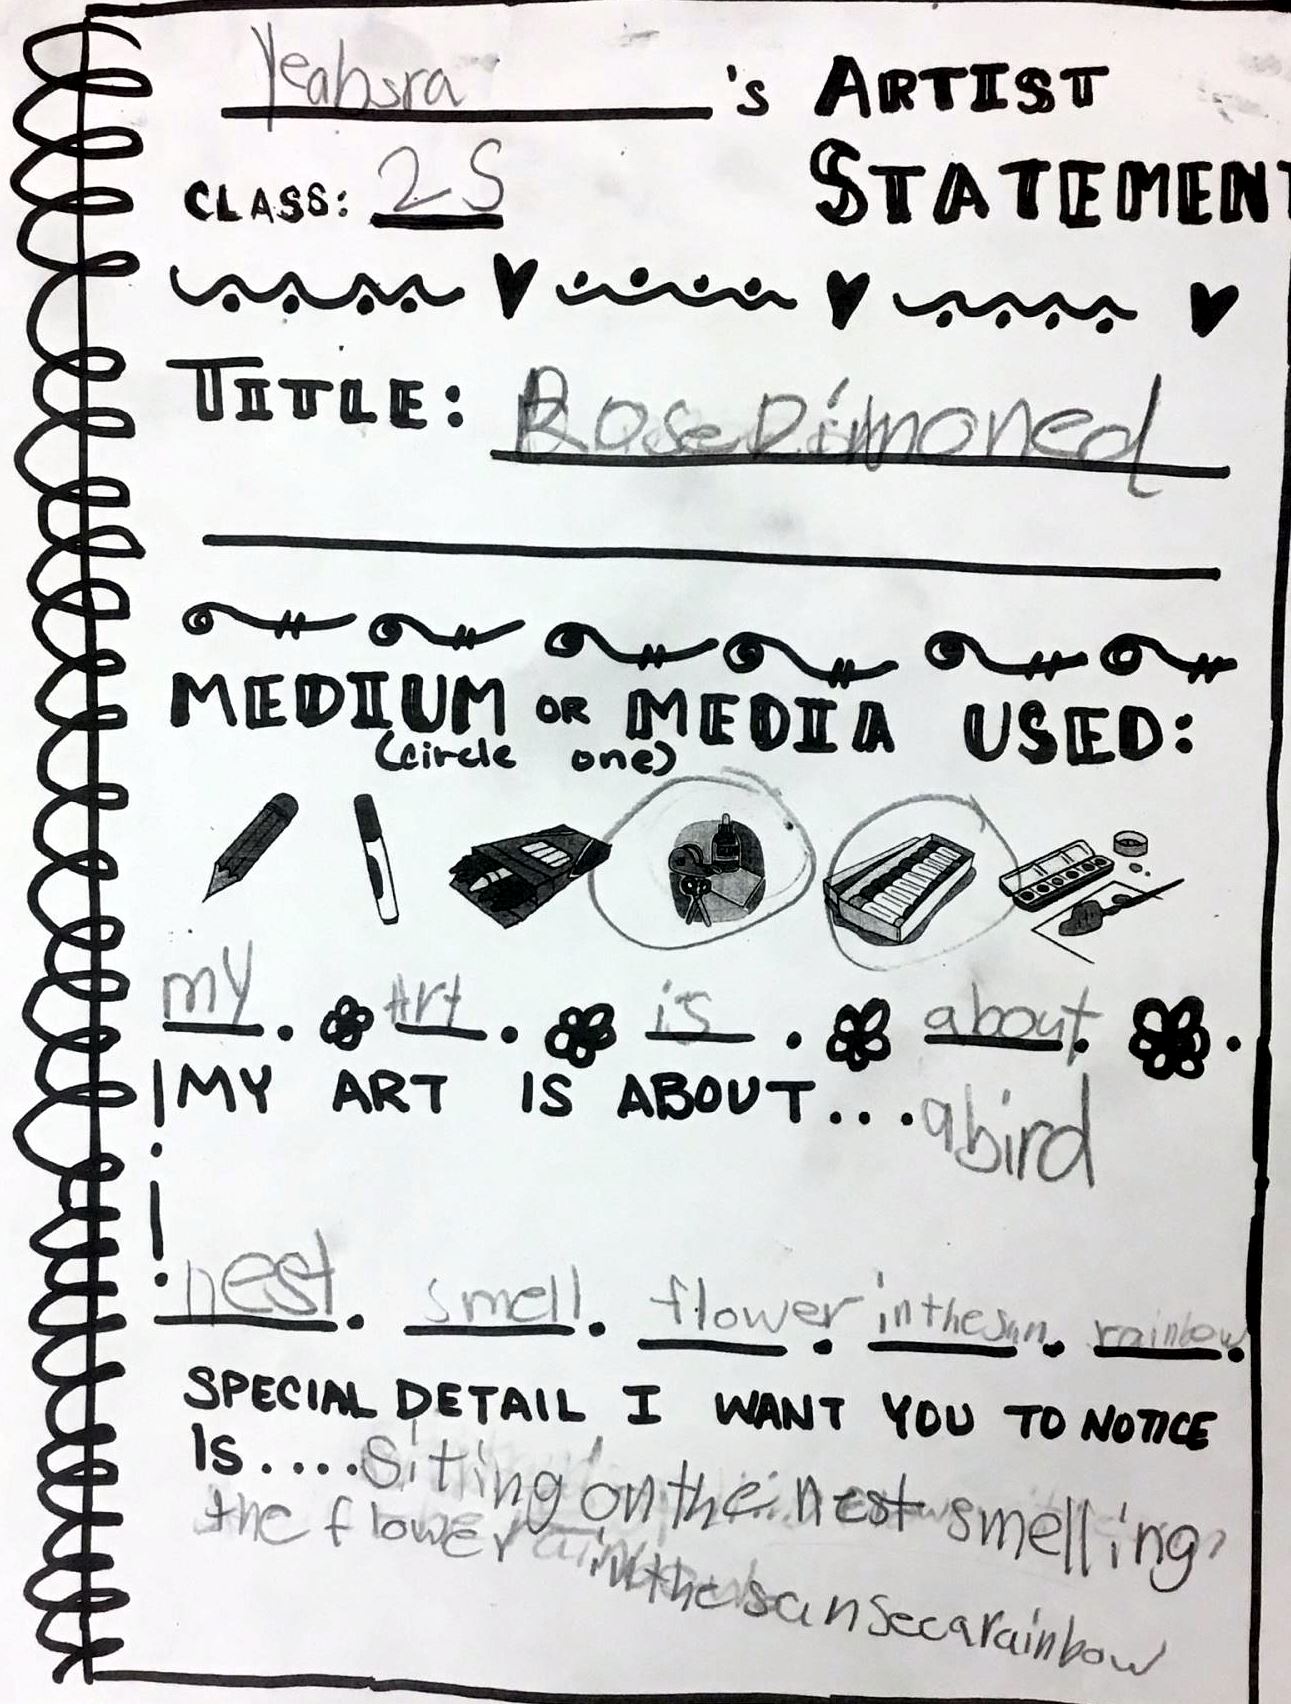 Yeabsra 's ARTIST
CLASS: 2S STATEMENT
TITLE: Rose Dimoned
MEDIUM OR MEDIA USED:
(circle one)
my . Art . is . about .
MY ART IS ABOUT... a bird
nest. smell. flower. in the sun. rainbow.
SPECIAL DETAIL I WANT YOU TO NOTICE
IS.... sitting on the nest smelling
the flower in the sun see a rainbow